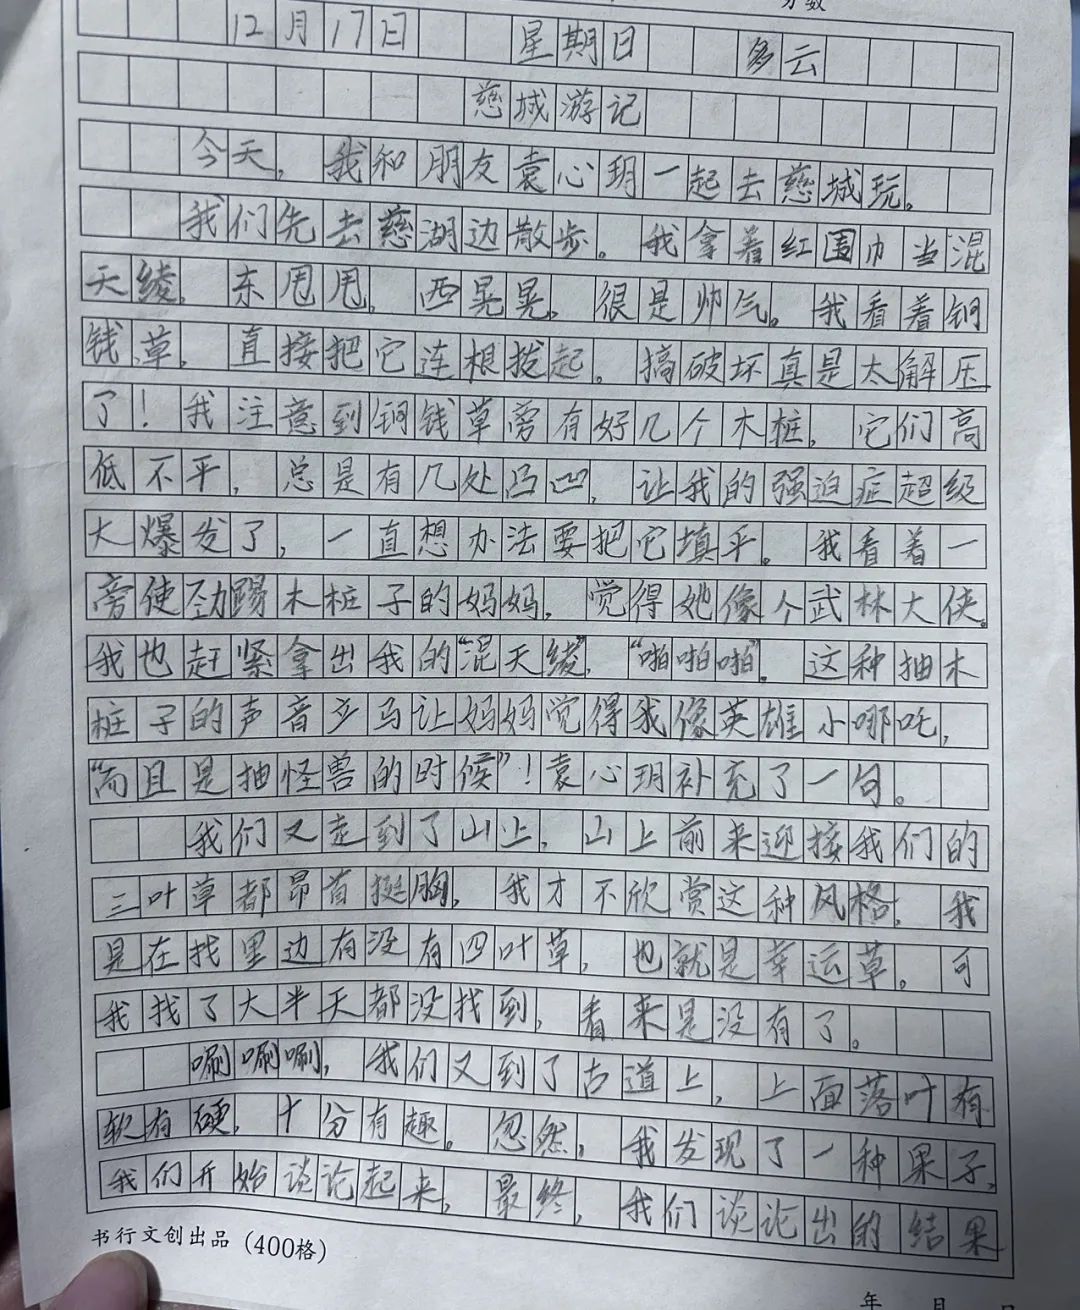 分数
12月17日 星期日 多云
慈城游记
今天，我和朋友袁心玥一起去慈城玩。
我们先去慈湖边散步。我拿着红围巾当混
天绫，东甩甩，西晃晃，很是帅气。我看着铜
钱草，直接把它连根拔起。搞破坏真是太解压
了！我注意到铜钱草旁有好几个木桩，它们高
低不平，总是有几处凸凹，让我的强迫症超级
大爆发了，一直想办法要把它填平。我看着一
旁使劲踢木桩子的妈妈，觉得她像个武林大侠。
我也赶紧拿出我的“混天绫”，“啪啪啪”。这种抽木
桩子的声音立马让妈妈觉得我像英雄小哪吒，
“而且是抽怪兽的时候”！袁心玥补充了一句。
我们又走到了山上，山上前来迎接我们的
三叶草都昂首挺胸，我才不欣赏这种风格，我
是在找里边有没有四叶草，也就是幸运草。可
我找了大半天都没找到，看来是没有了。
唰唰唰，我们又到了古道上，上面落叶有
软有硬，十分有趣。忽然，我发现了一种果子，
我们开始谈论起来，最终，我们谈论出的结果
书行文创出品（400格）
年 月 日